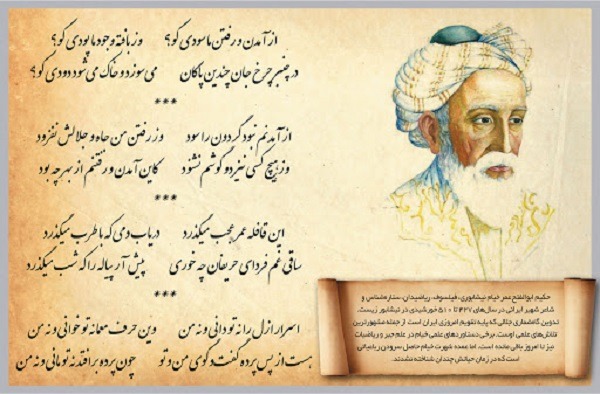 از آمدن و رفتن ما سودی کو؟ وز بافته وجود ما پودی کو؟
در چنبر چرخ جان چندین پاکان می سوزد و خاک می شود دودی کو؟
***
از آمدنم نبود گردون را سود وز رفتن من جاه و جلالش نفزود
وز هیچ کسی نیز دو گوشم نشنود کاین آمدن و رفتنم از بهر چه بود
***
این قافله عمر عجب میگذرد دریاب دمی که با طرب میگذرد
ساقی غم فردای حریفان چه خوری پیش آر پیاله را که شب میگذرد
***
اسرار ازل را نه تو دانی و نه من وین حرف معما نه تو خوانی و نه من
هست از پس پرده گفتگوی من و تو چون پرده برافتد نه تو مانی و نه من
حکیم ابوالفتح عمر خیام نیشابوری، فیلسوف، ریاضیدان، ستاره‌شناس و
شاعر شهیر ایرانی در سال‌های ۴۲۷ تا ۵۱۰ خورشیدی در نیشابور زیست.
تدوین گاهشماری جلالی که پایه تقویم امروزی ایران است از جمله مشهورترین
تلاش‌های علمی اوست. برخی دستاوردهای علمی خیام در علم جبر و ریاضیات
نیز تا امروز باقی مانده است. اما عمده شهرت خیام حاصل سرودن رباعیاتی
است که در زمان حیاتش چندان شناخته نشدند.